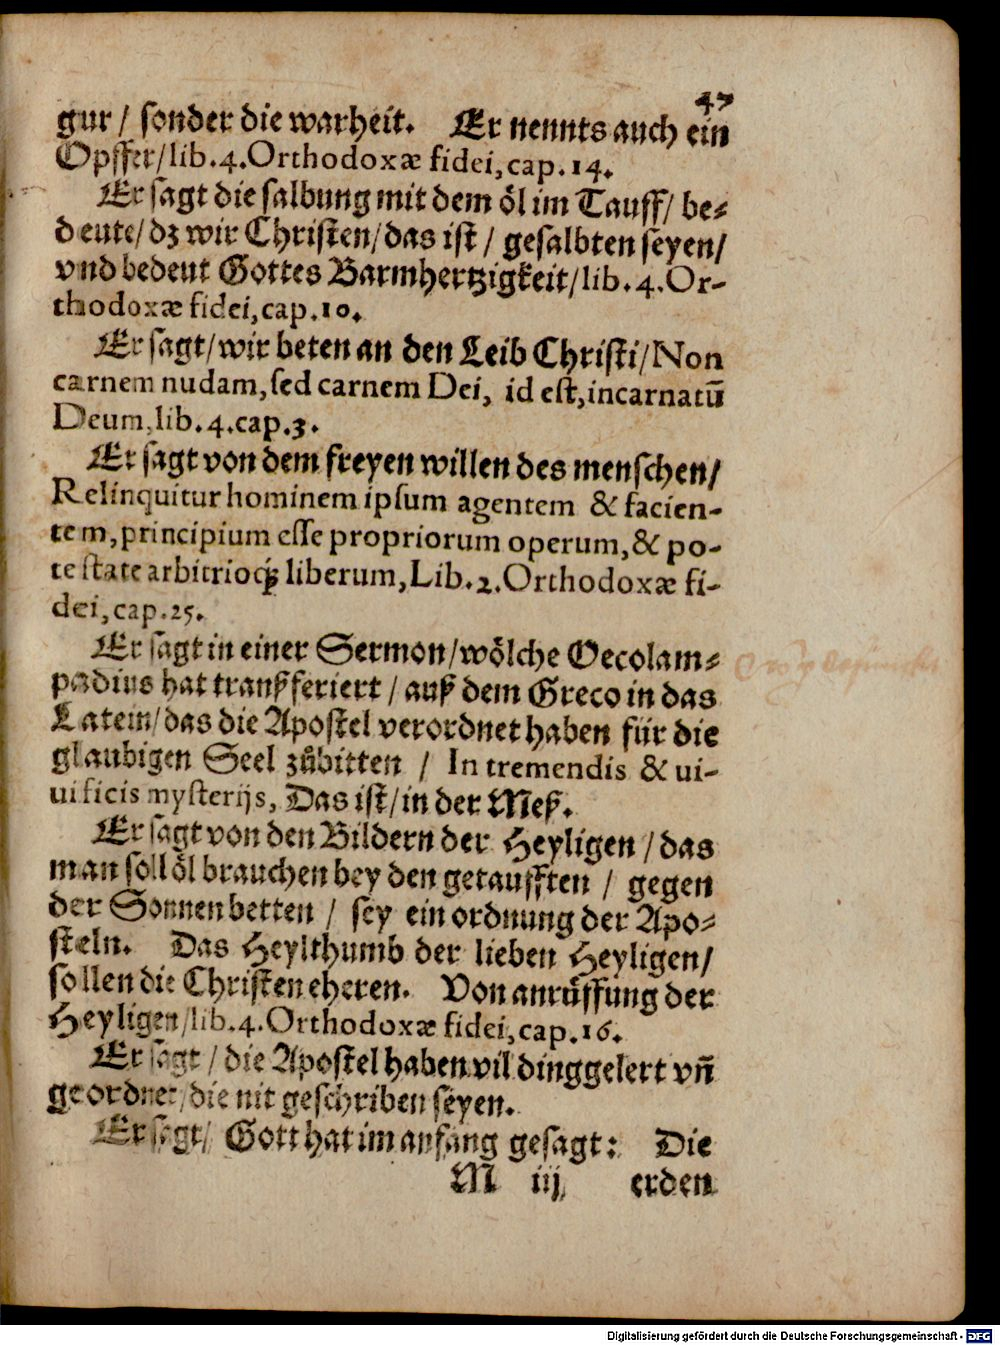 47
gur / sonder die warheit. Er nennts auch ein
Opffer/lib.4.Orthodoxæ fidei,cap.14.
Er sagt die salbung mit dem öl im Tauff/ be⸗
deute/dz wir Christen/das ist / gesalbten seyen/
vnd bedeut Gottes Barmhertzigkeit/lib.4.Or-
thodoxæ fidei,cap.10.
Er sagt/wir beten an den Leib Christi/Non
carnem nudam,sed carnem Dei, id est,incarnatū
Deum,lib.4.cap.3.
Er sagt von dem freyen willen des menschen/
Relinquitur hominem ipsum agentem & facien-
tem,principium esse propriorum operum,& po-
testate arbitrioq̃ liberum,Lib.2.Orthodoxæ fi-
dei,cap.25.
Er sagt in einer Sermon/wölche Oecolam⸗
padius hat transferiert / auß dem Greco in das
Latein/das die Apostel verordnet haben für die
glaubigen Seel zůbitten / In tremendis & ui-
uificis mysterijs, Das ist/in der Meß.
Er sagt von den Bildern der Heyligen /das
man soll öl brauchen bey den getaufften / gegen
der Sonnen betten / sey ein ordnung der Apo⸗
steln. Das Heylthumb der lieben Heyligen/
sollen die Christen eheren. Von anrůffung der
Heyligen/lib.4.Orthodoxæ fidei,cap.16.
Er sagt / die Apostel haben vil ding gelert vñ
geordnet/die nit geschriben seyen.
Er sagt/ Gott hat im anfang gesagt: Die
M iij erden
Digitalisierung gefördert durch die Deutsche Forschungsgemeinschaft - DFG